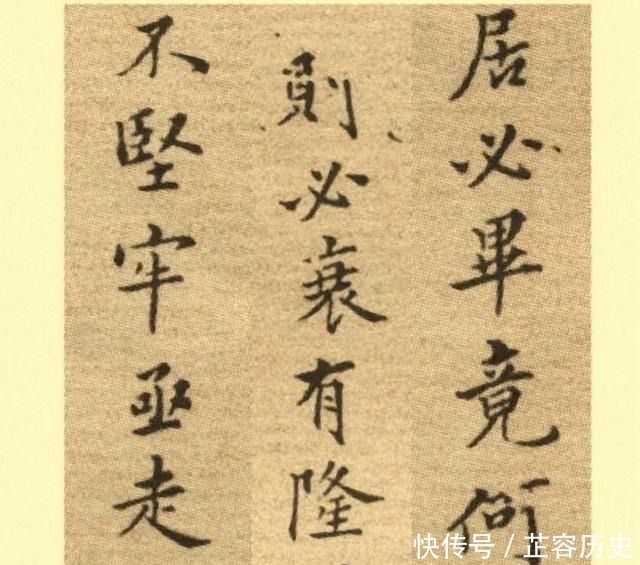 居必畢竟何
則必衰有隆
不堅牢亟走
快传号 / 芷容历史